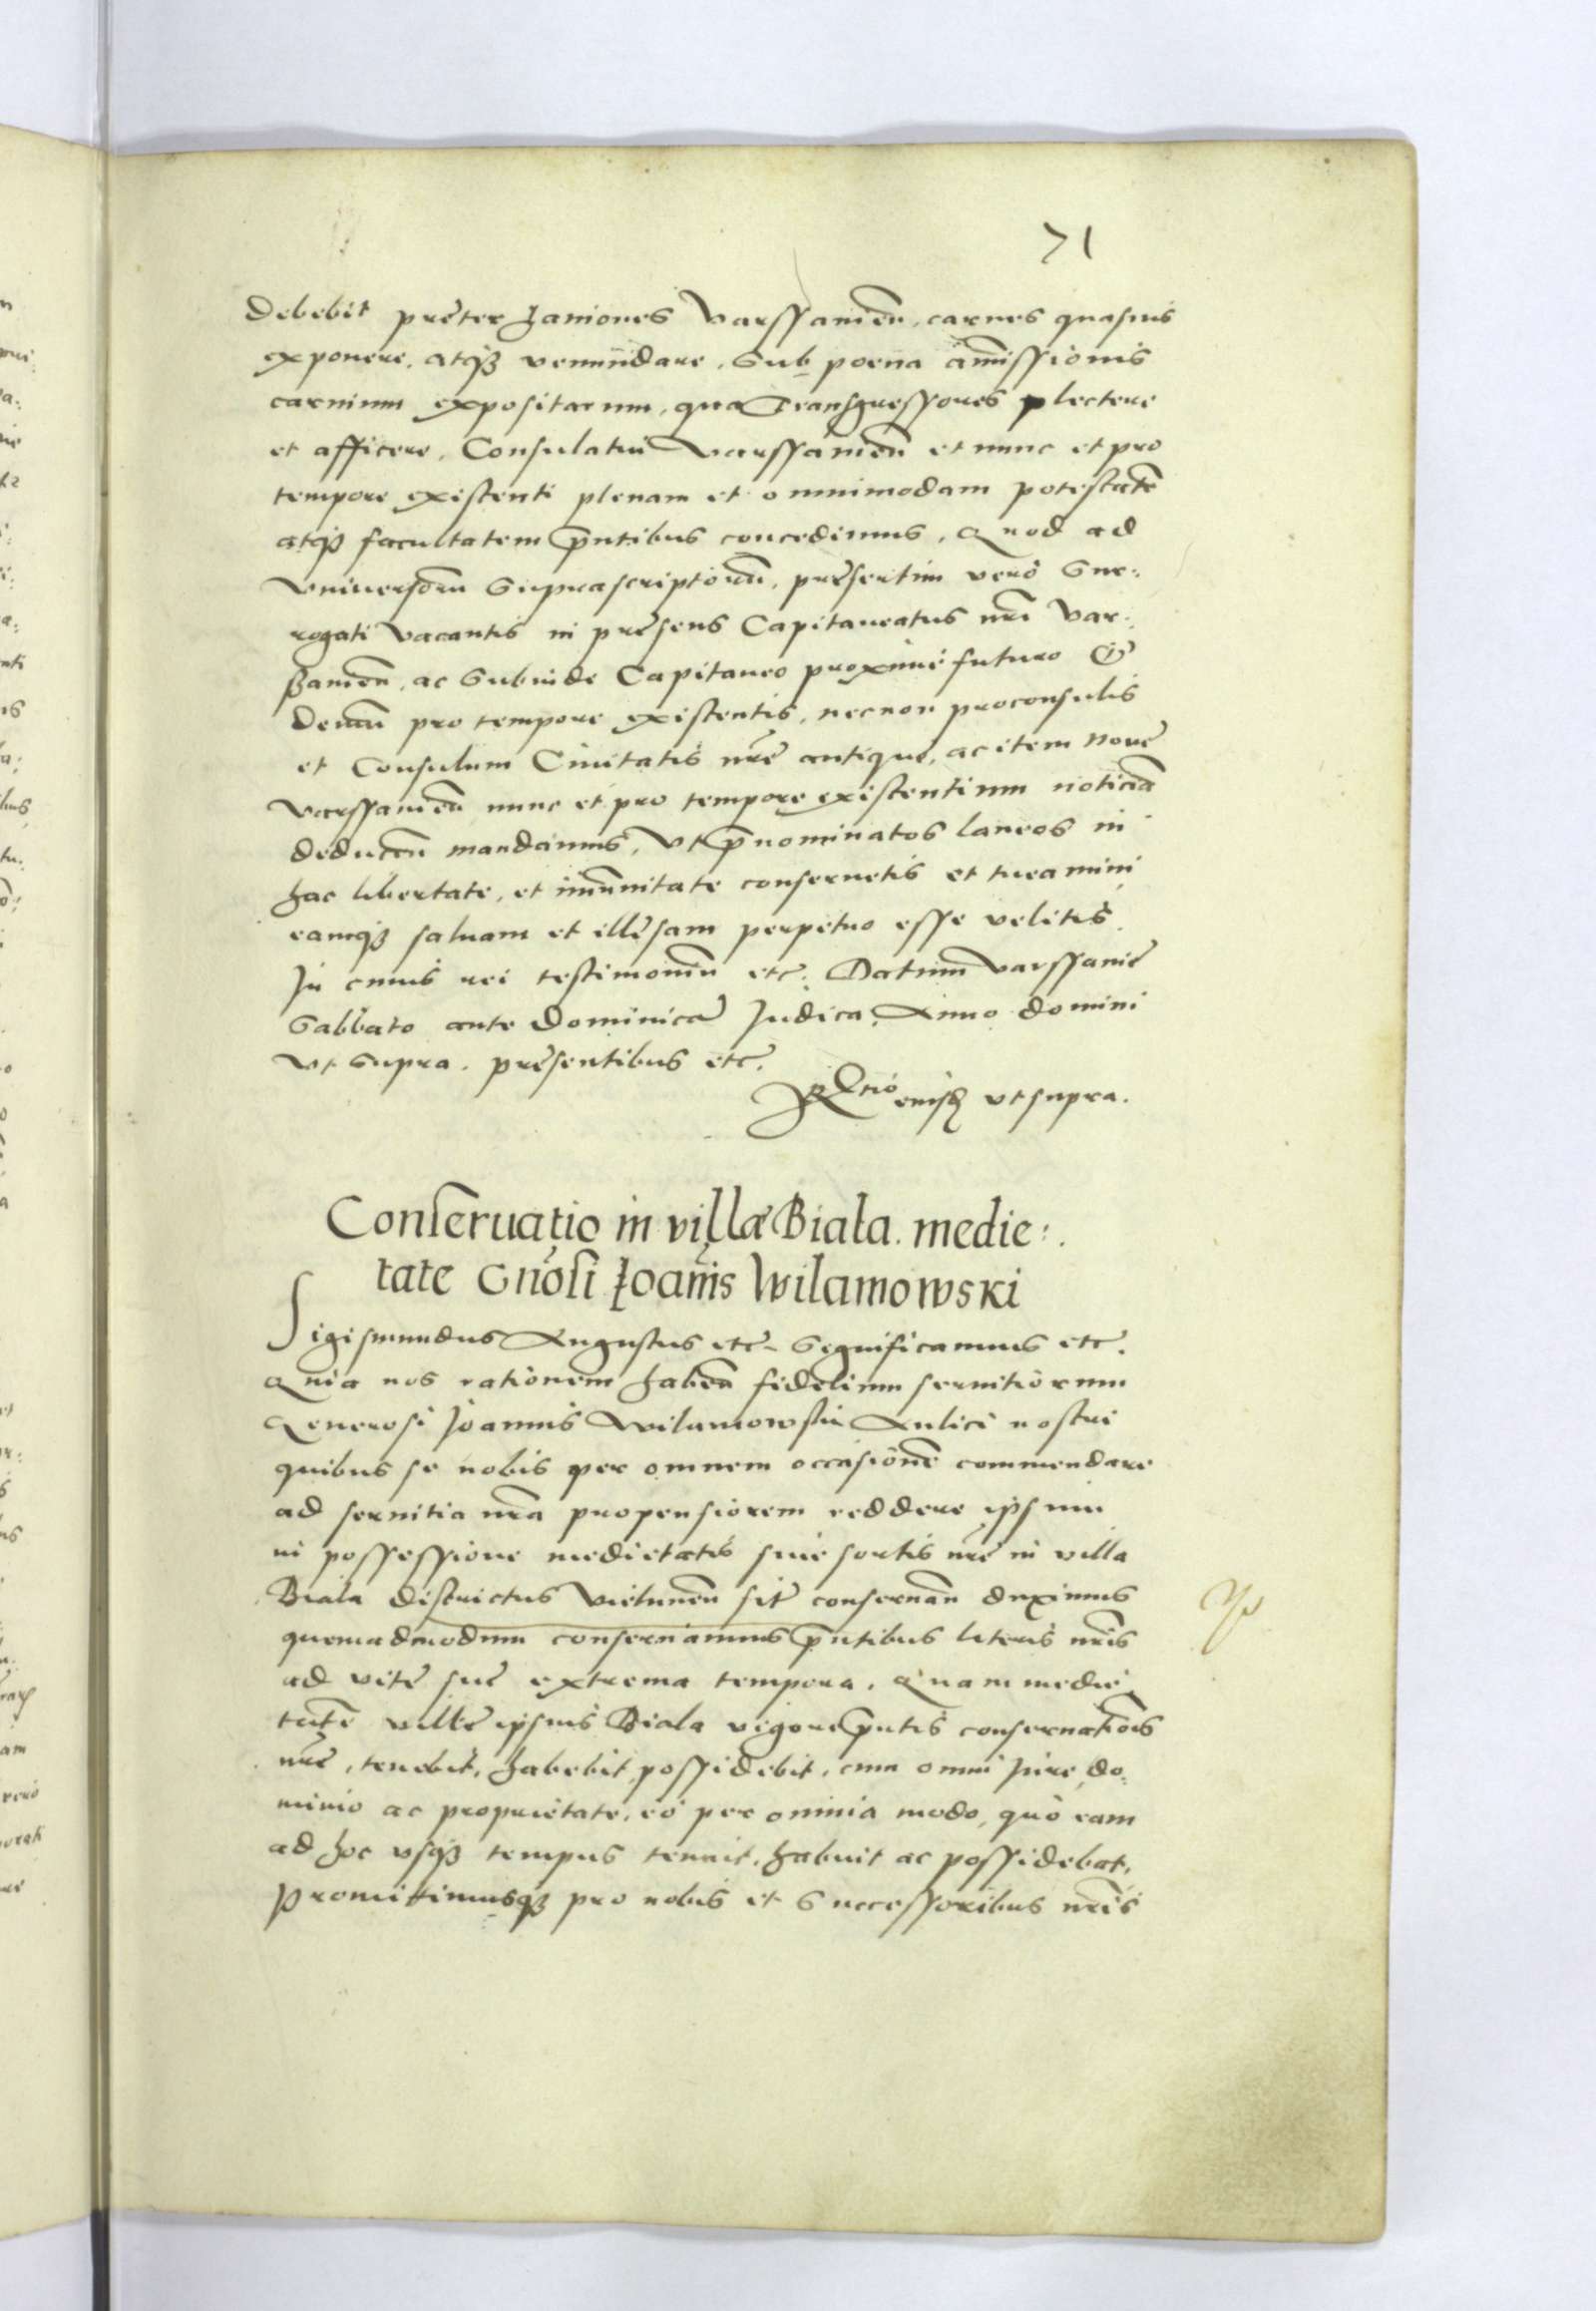 71
debebit preter Laniones Varssauien, carnes quasuis
exponere, atq3 venundare, Sub poena amissionis
carnium expositarum, qua Transgressores plectere
et afficere, Consulatui Varssauien et nunc et pro
tempore existenti plenam et omnimodam potestate
atq3 facultatem pntibus concedimus, Quod ad
Vniuersoru Suprascriptoru, presertim vero Sur:
rogati vacantis in presens Capitaneatus nri Var:
ßauien, ac Subinde Capitaneo proxime futuro &
demu pro tempore existentis, necnon proconsulis
et Consulum Ciuitatis nre antique, ac item noue
Varssauien nunc et pro tempore existentium noticia
deducen mandamus, Vt pnominatos laneos in
hac libertate, et imunitate conseruetis et tueamini
eamq3 saluam et illesam perpetuo esse velitis.
In cuius rei testimoniu etc. Datum Varssauie
Sabbato ante Dominica Judica, Anno domini
Vt Supra. presentibus etc.
Rltio eiusd vt supra.
Conseruatio in villæ Biala. medie:
tate Gnosi Joanis Wilamowski
Sigismundus Augustus etc. Significamus etc.
Quia nos rationem haben fidelium seruitiorum
Generosi Joannis Wilamowski Aulici nostri
quibus se nobis per omnem occasione commendare
ad seruitia nra propensiorem reddere ipsum
in possessione medietatis siue sortis nre in villa
Biala districtus Vielunen sit conseruan duximus
quemadmodum conseruamus pntibus literis nris
ad vite sue extrema tempora. Quam medie
tate ville ipsius Biala vigore pntis conseruatiois
nre, tenebit, habebit possidebit, cum omni Jure, do:
minio ac proprietate, eo per omnia modo, quo eam
ad hoc vsq3 tempus tenuit, habuit ac possidebat,
Promittimusq3 pro nobis et Successoribus nris